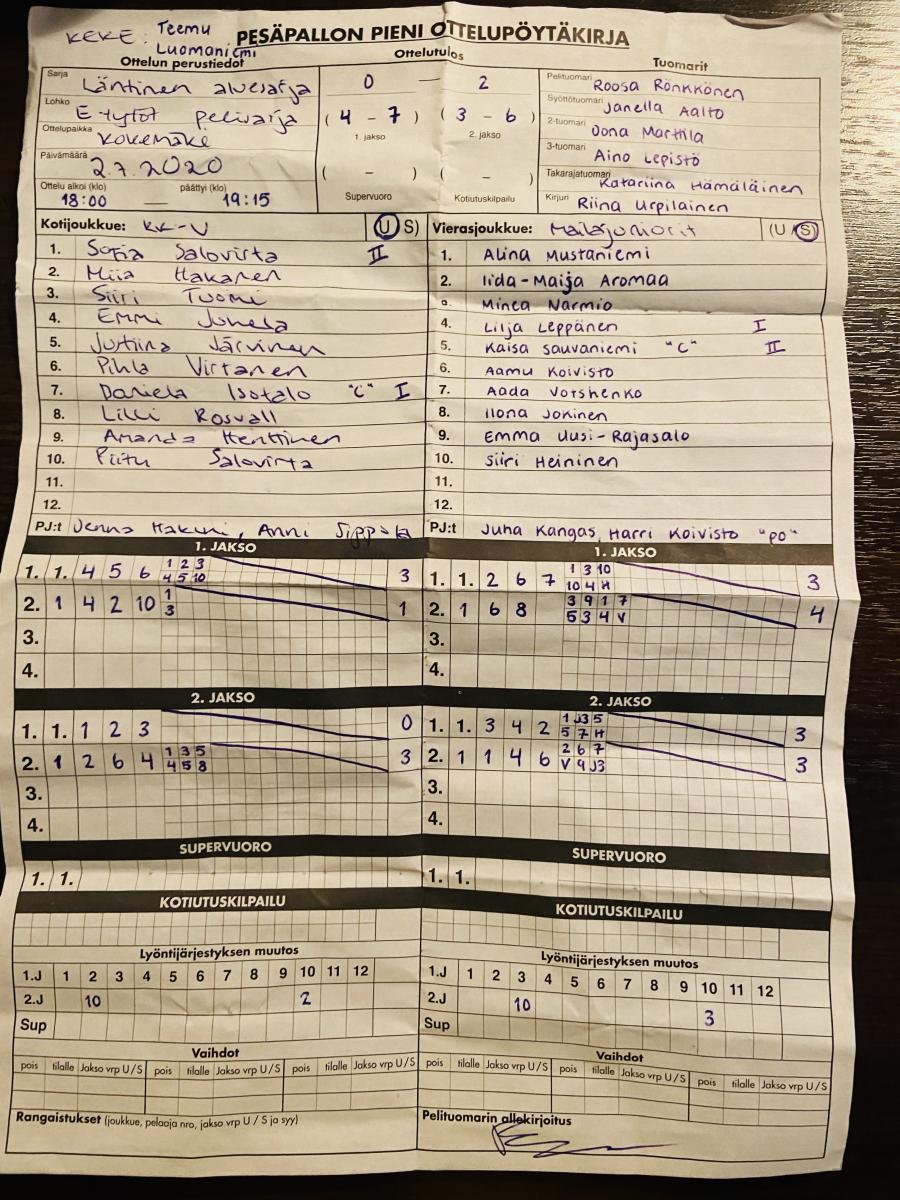 KEKE: Teemu Luomaniemi
PESÄPALLON PIENI OTTELUPÖYTÄKIRJA
Ottelun perustiedot
Ottelutulos
Tuomarit
Sarja Läntinen aluesarja
Lohko E-tytöt pelisarja
Ottelupaikka Kokemäke
Päivämäärä 2.7.2020
Ottelu alkoi (klo) päättyi (klo)
18:00 — 19:15
0 — 2
(4 - 7) (3 - 6)
1. jakso 2. jakso
( - ) ( - )
Supervuoro Kotiutuskilpailu
Pelituomari Roosa Rönkkönen
Syöttötuomari Janella Aalto
2-tuomari Oona Marttila
3-tuomari Aino Lepistö
Takarajatuomari Katariina Hämäläinen
Kirjuri Riina Urpilainen
Kotijoukkue: KK-V (U S)
1. Sofia Salovirta II
2. Miia Hakanen
3. Siiri Tuomi
4. Emmi Juhela
5. Justiina Järvinen
6. Pihla Virtanen
7. Daniela Isotalo "C" I
8. Lilli Rosvall
9. Amanda Henttinen
10. Piitu Salovirta
11.
12.
PJ:t Jenna Hakuni, Anni Sippola
Vierasjoukkue: Mailajuniorit (U S)
1. Alina Mustaniemi
2. Iida-Maija Aromaa
Minea Narmio
4. Lilja Leppänen I
5. Kaisa Sauvaniemi "C" II
6. Aamu Koivisto
7. Aada Votshenko
8. Ilona Jokinen
9. Emma Uusi-Rajasalo
10. Siiri Heininen
11.
12.
PJ:t Juha Kangas, Harri Koivisto "PO"
1. JAKSO
1. 1. 4 5 6 1 2 3 3
4 5 10
2. 1 4 2 10 1 1
3
3.
4.
1. JAKSO
1. 1. 2 6 7 1 3 10 3
10 4 H
2. 1 6 8 3 9 1 7 4
5 3 4 V
3.
4.
2. JAKSO
1. 1. 1 2 3 0
2. 1 2 6 4 1 3 5 3
4 5 8
3.
4.
2. JAKSO
1. 1. 3 4 2 1 J3 5 3
5 7 H
2. 1 1 4 6 2 6 7 3
V 9 J3
3.
4.
SUPERVUORO
1. 1.
SUPERVUORO
1. 1.
KOTIUTUSKILPAILU
KOTIUTUSKILPAILU
Lyöntijärjestyksen muutos
1.J 1 2 3 4 5 6 7 8 9 10 11 12
2.J 10 2
Sup
Lyöntijärjestyksen muutos
1.J 1 2 3 4 5 6 7 8 9 10 11 12
2.J 10 3
Sup
Vaihdot
pois tilalle Jakso vrp U/S pois tilalle Jakso vrp U/S pois tilalle Jakso vrp U/S
Vaihdot
pois tilalle Jakso vrp U/S pois tilalle Jakso vrp U/S pois tilalle Jakso vrp U/S
Rangaistukset (joukkue, pelaaja nro, jakso vrp U / S ja syy)
Pelituomarin allekirjoitus